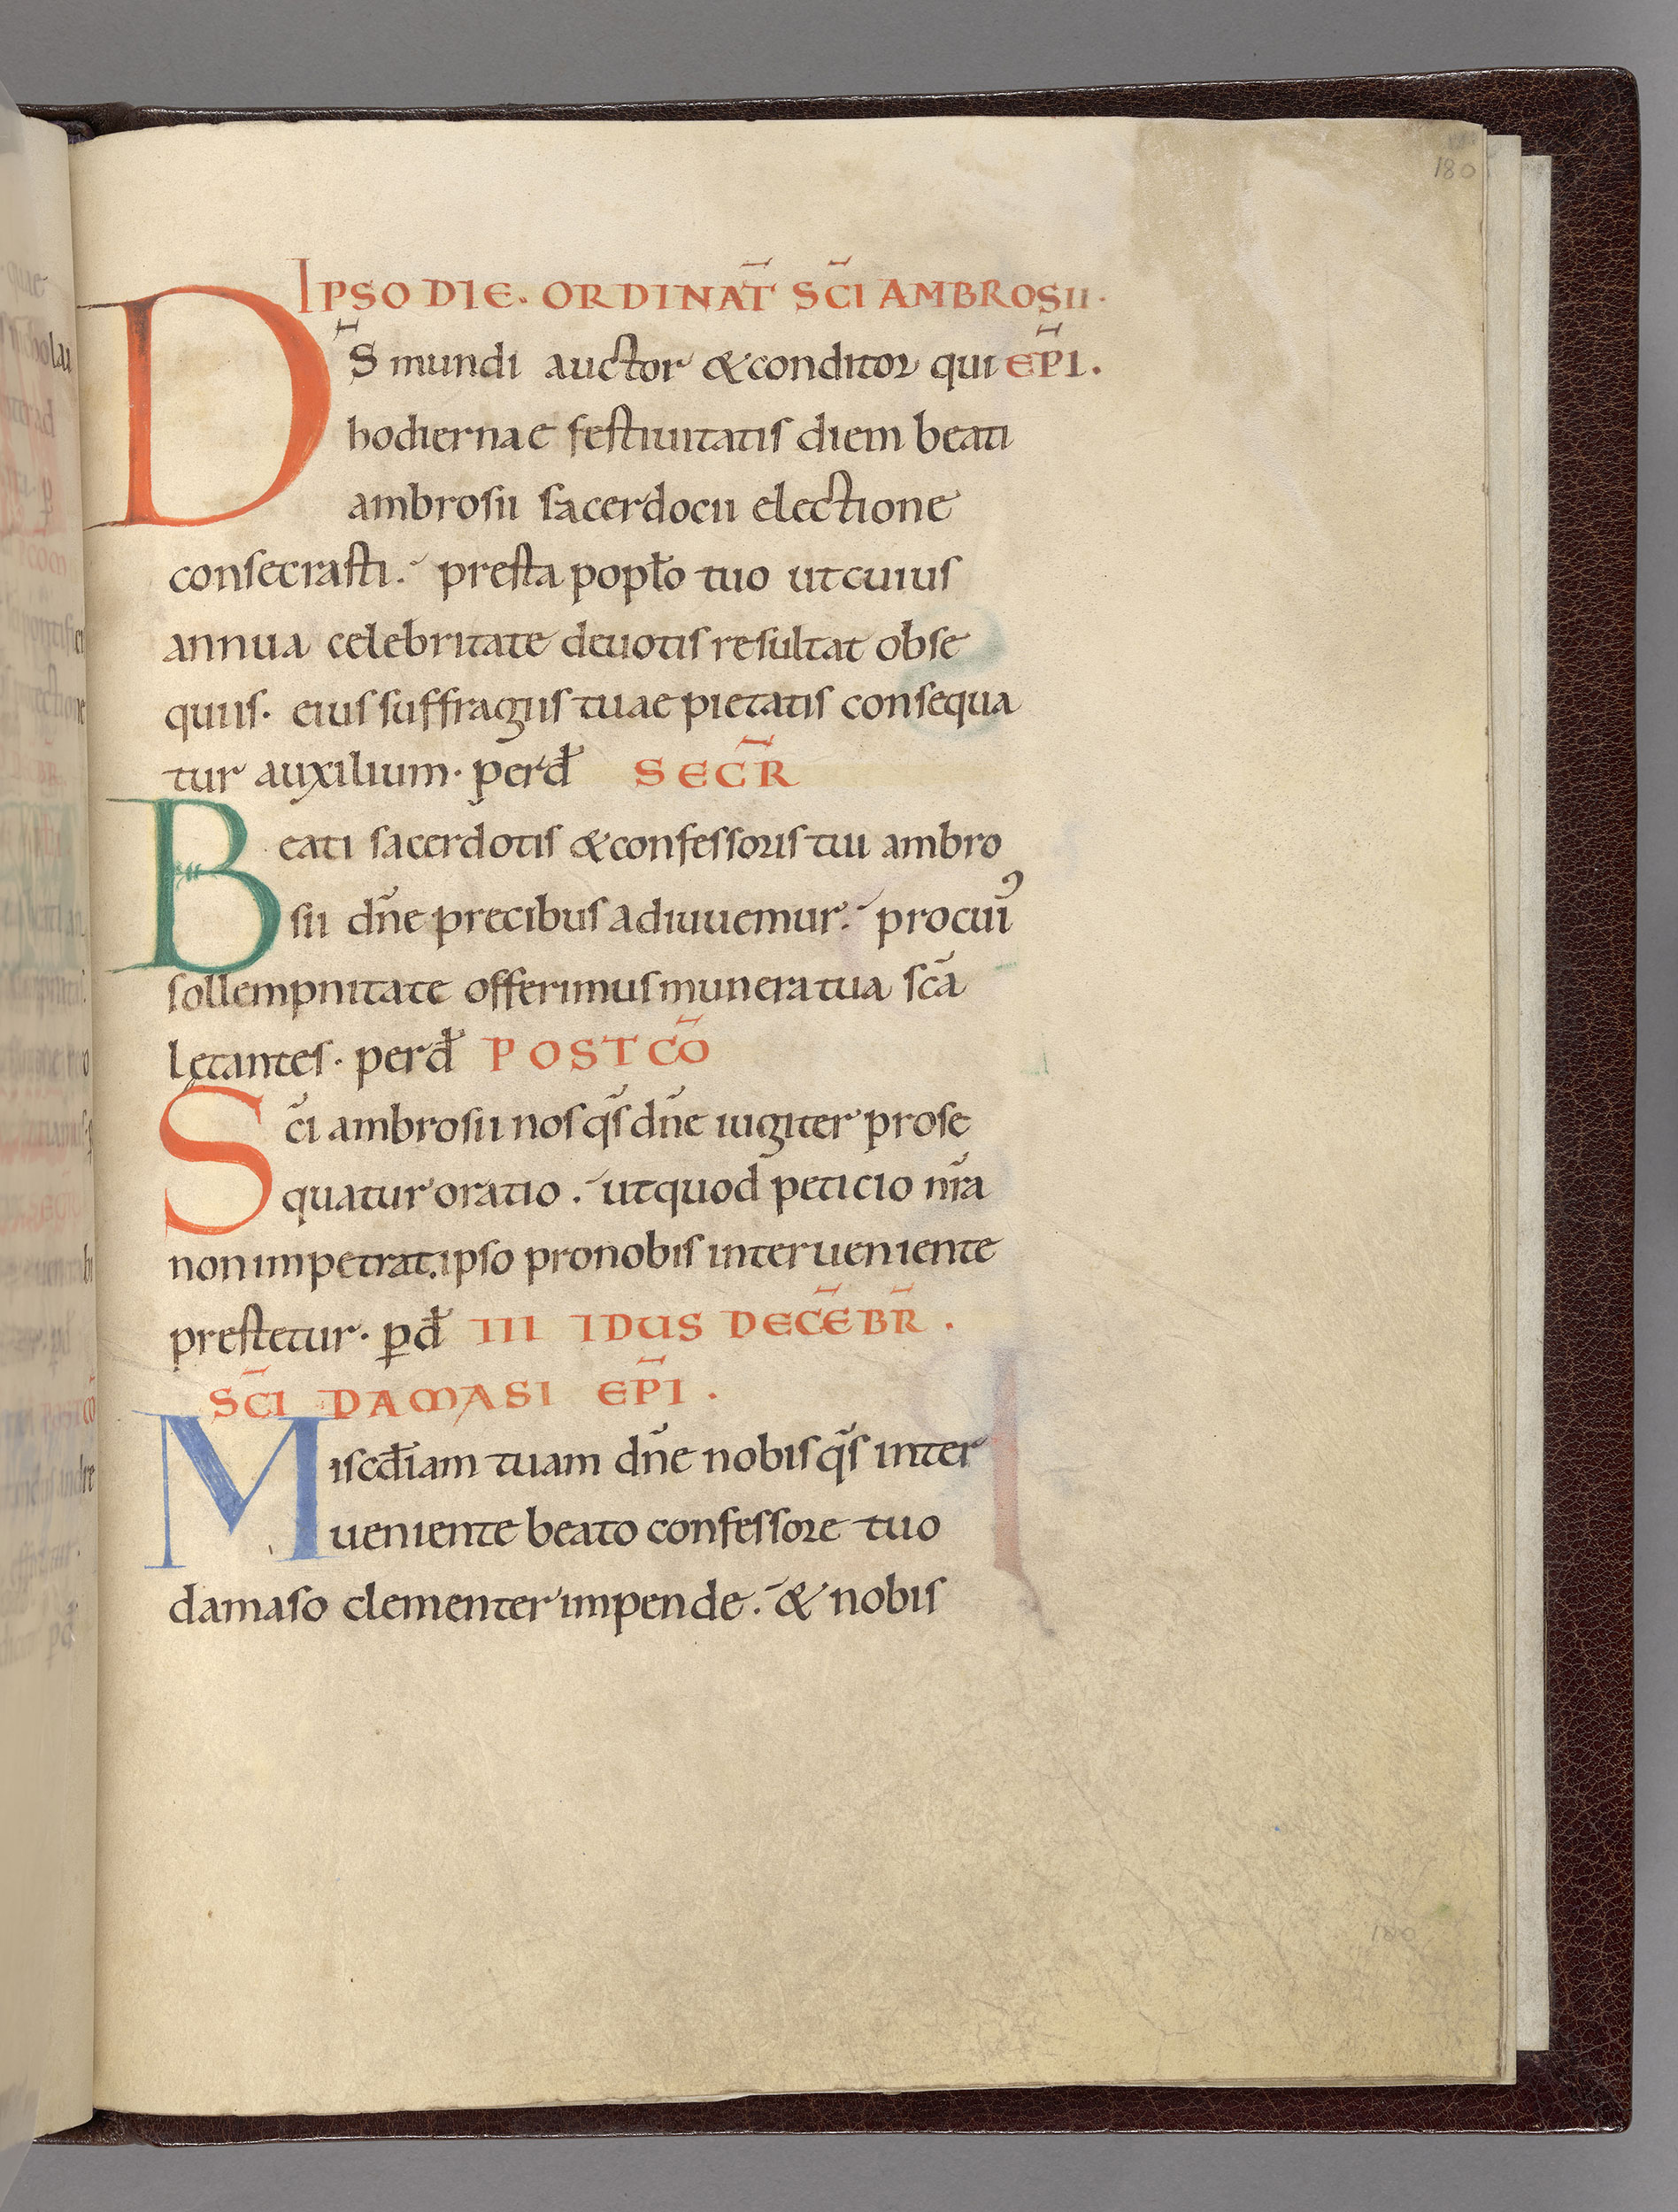 180
IPSO DIE. ORDINAT̄ SC̄I AMBROSII.
DS̄ mundi auctor & conditor qui EP̄I.
hodiernae festiuitatis diem beati
ambrosii sacerdocii electione
consecrasti. presta popło tuo ut cuius
annua celebritate deuotis resultat obse
quiis. eius suffragiis tuae pietatis consequa
tur auxilium. perđ SECR̄
Beati sacerdotis & confessoris tui ambro
sii dn̄e precibus adiuuemur. pro cuiꝰ
sollempnitate offerimus munera tua sc̄a
lętantes. perđ POSTCŌ
Sc̄i ambrosii nos qs̄ dn̄e iugiter prose
quatur oratio. ut quod peticio nr̄a
non impetrat. ipso pro nobis interueniente
prestetur. ꝑđ III IDUS DECĒBR̄.
SC̄I DAMASI EP̄I.
Miscđiam tuam dn̄e nobis qs̄ inter
ueniente beato confessore tuo
damaso clementer impende. & nobis
180